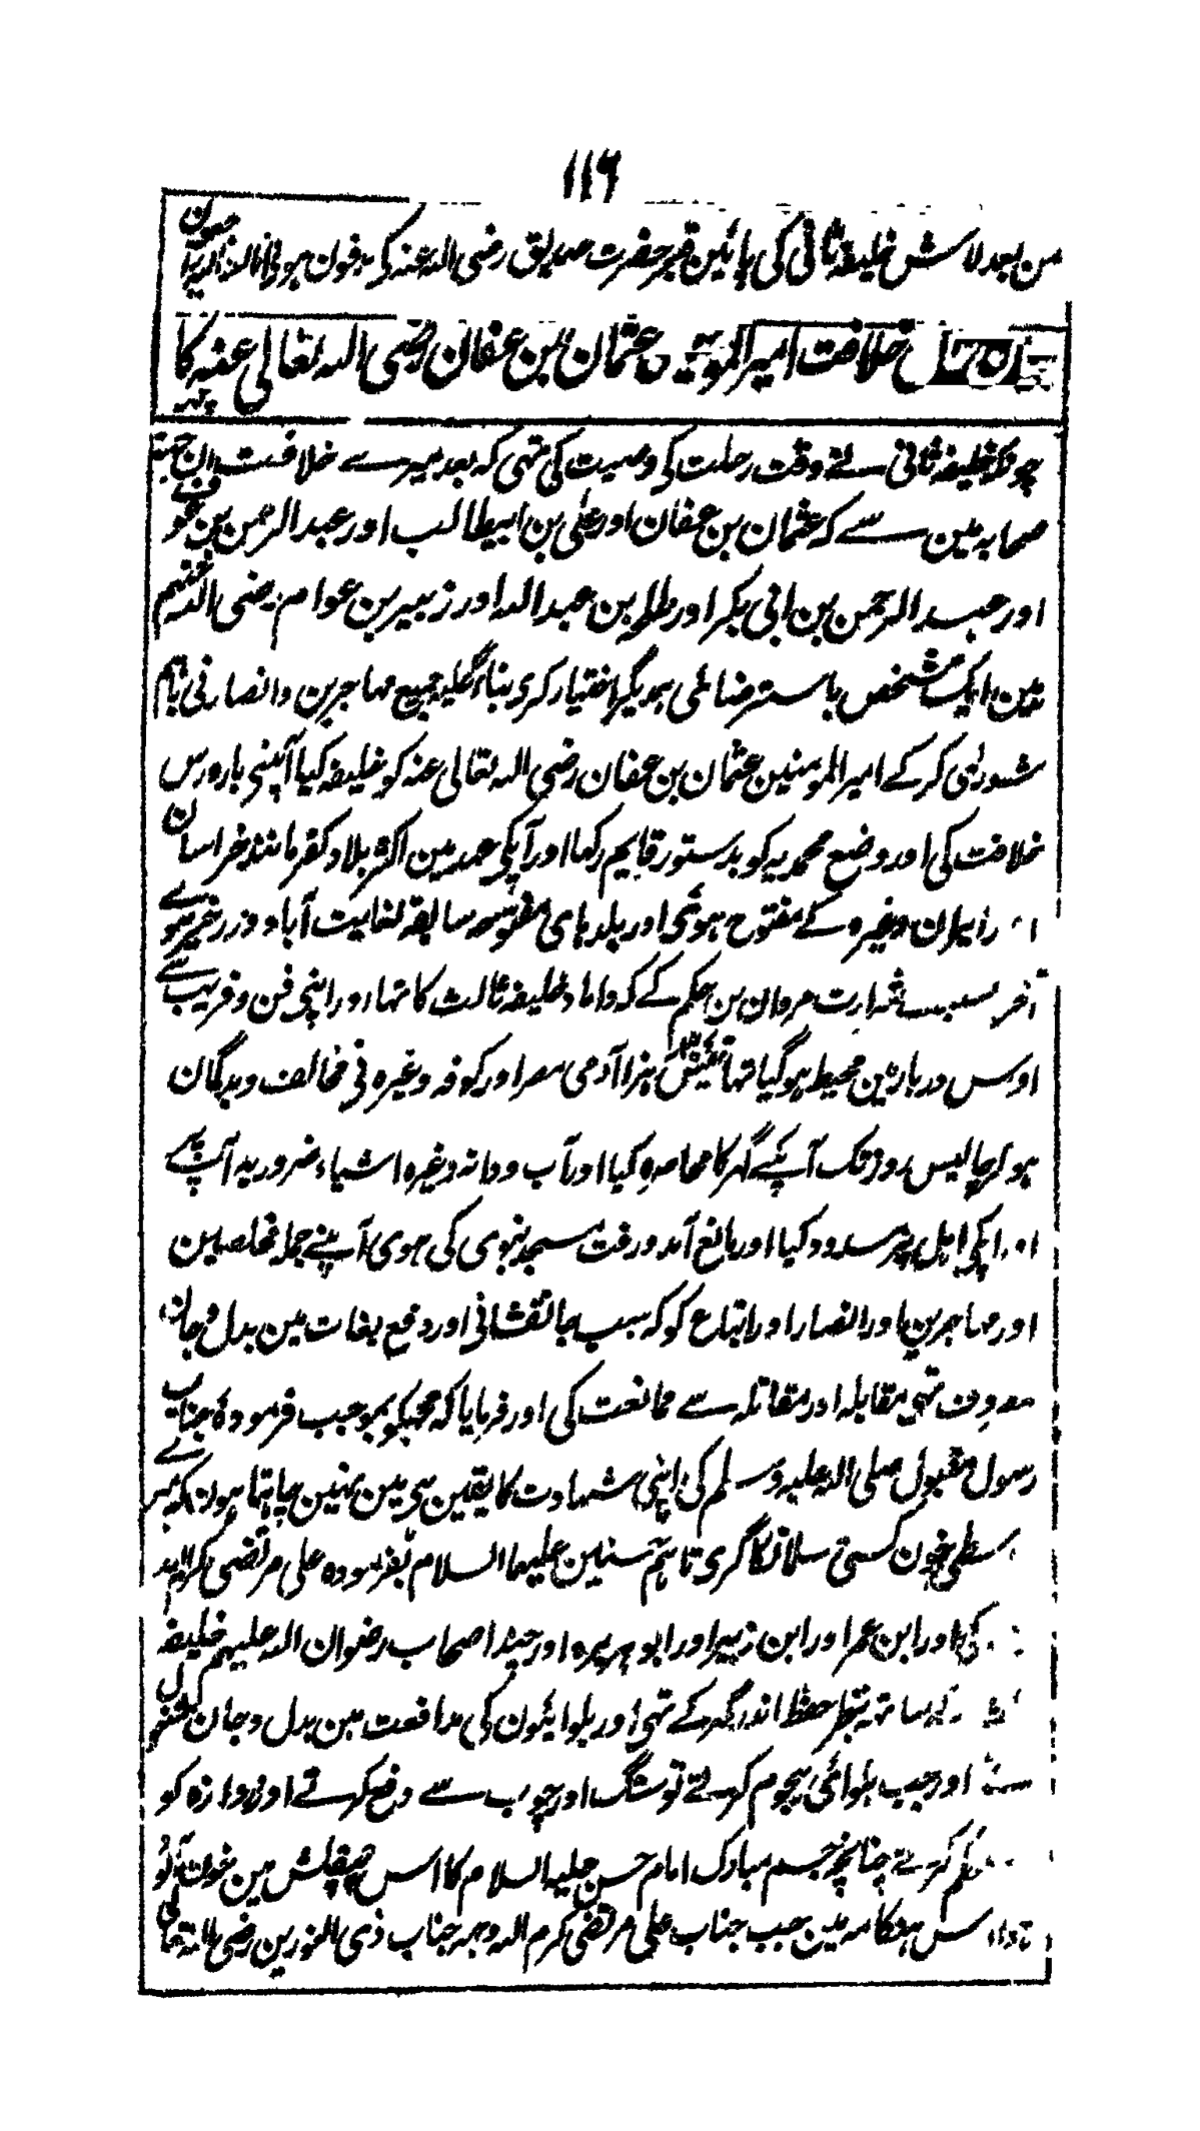 ۱۱۶
من بعد لاش خلیفہ ثانی کی پائین قبر حضرت صدیق رضی اللہ عنہ کی مدفون ہوئی انا للہ
خلافت امیر المومنین عثمان بن عفان رضی اللہ تعالی عنہ کا
چونکہ خلیفہ ثانی نے وقت رحلت کی وصیت کی تہی کہ بعد میرے خلافت ان چہہ
صحابہ مین سے کہ عثمان بن عفان اور علی بن ابیطالب اور عبد الرحمن بن عوف
اور عبد الرحمن بن ابی بکر اور طلحہ بن عبد اللہ اور زبیر بن عوام رضی اللہ عنہم
مین ایک شخص باسترضائی ہمدیگر اختیار کری بناءً علیہ جمیع مہاجرین و انصار نی باہم
شوری کر کے امیر المومنین عثمان بن عفان رضی اللہ تعالی عنہ کو خلیفہ کیا آپنی بارہ برس
خلافت کی اور وضع محمدیہ کو بدستور قایم رکہا اور آپکی عہد مین اکثر بلاد کفر مانند خراسان
ایران وغیرہ کے مفتوح ہوئی اور بلدہای مفتوحہ سابقہ لغایت آباد و زرخیز ہوے
آخر بسبب شرارت مروان بن حکم کے کہ داماد خلیفہ ثالث کا تہا اور اپنی فن و فریب سے
اوس دربار مین محیط ہو گیا تہا ہزار آدمی مصر اور کوفہ وغیرہ نی مخالف و بدگمان
ہو کر چالیس روز تک آپکے گہر کا محاصرہ کیا اور آب و دانہ وغیرہ اشیاء ضروریہ آپ پر
اور آپکی اہل پر مسدود کیا اور مانع آمد و رفت مسجد نبوی کی ہوی آپنے جملہ مخلصین
اور مہاجرین اور انصار اور اتباع کو کہ سبب جانفشانی اور دفع بغات مین بدل و جان
مصروف تہی مقابلہ اور مقاتلہ سے ممانعت کی اور فرمایا کہ مجہکو بموجب فرمودہ جناب
رسول مقبول صلی اللہ علیہ وسلم کی اپنی شہادت کا یقین ہی مین نہین چاہتا ہون کہ میرے
واسطی خون کسی مسلمان کا گری تاہم حسنین علیہما السلام بفرمودہ علی مرتضی کرم اللہ
کی اور ابن عمر اور ابن زبیر اور ابو ہریرہ اور چند اصحاب رضوان اللہ علیہم خلیفہ
ساتہ بنظر حفظ اندر گہر کے تہی اور بلوائیون کی مدافعت مین بدل و جان مشغول
اور جب بلوائی ہجوم کرتے تو سنگ اور چوب سے دفع کرتے اور دروازہ کو
محکم کرتے چنانچہ جسم مبارک امام حسن علیہ السلام کا اس چپقلش مین خون آلود
ہوا اس ہنگامہ مین جب جناب علی مرتضی کرم اللہ وجہہ جناب ذی النورین رضی اللہ تعالی